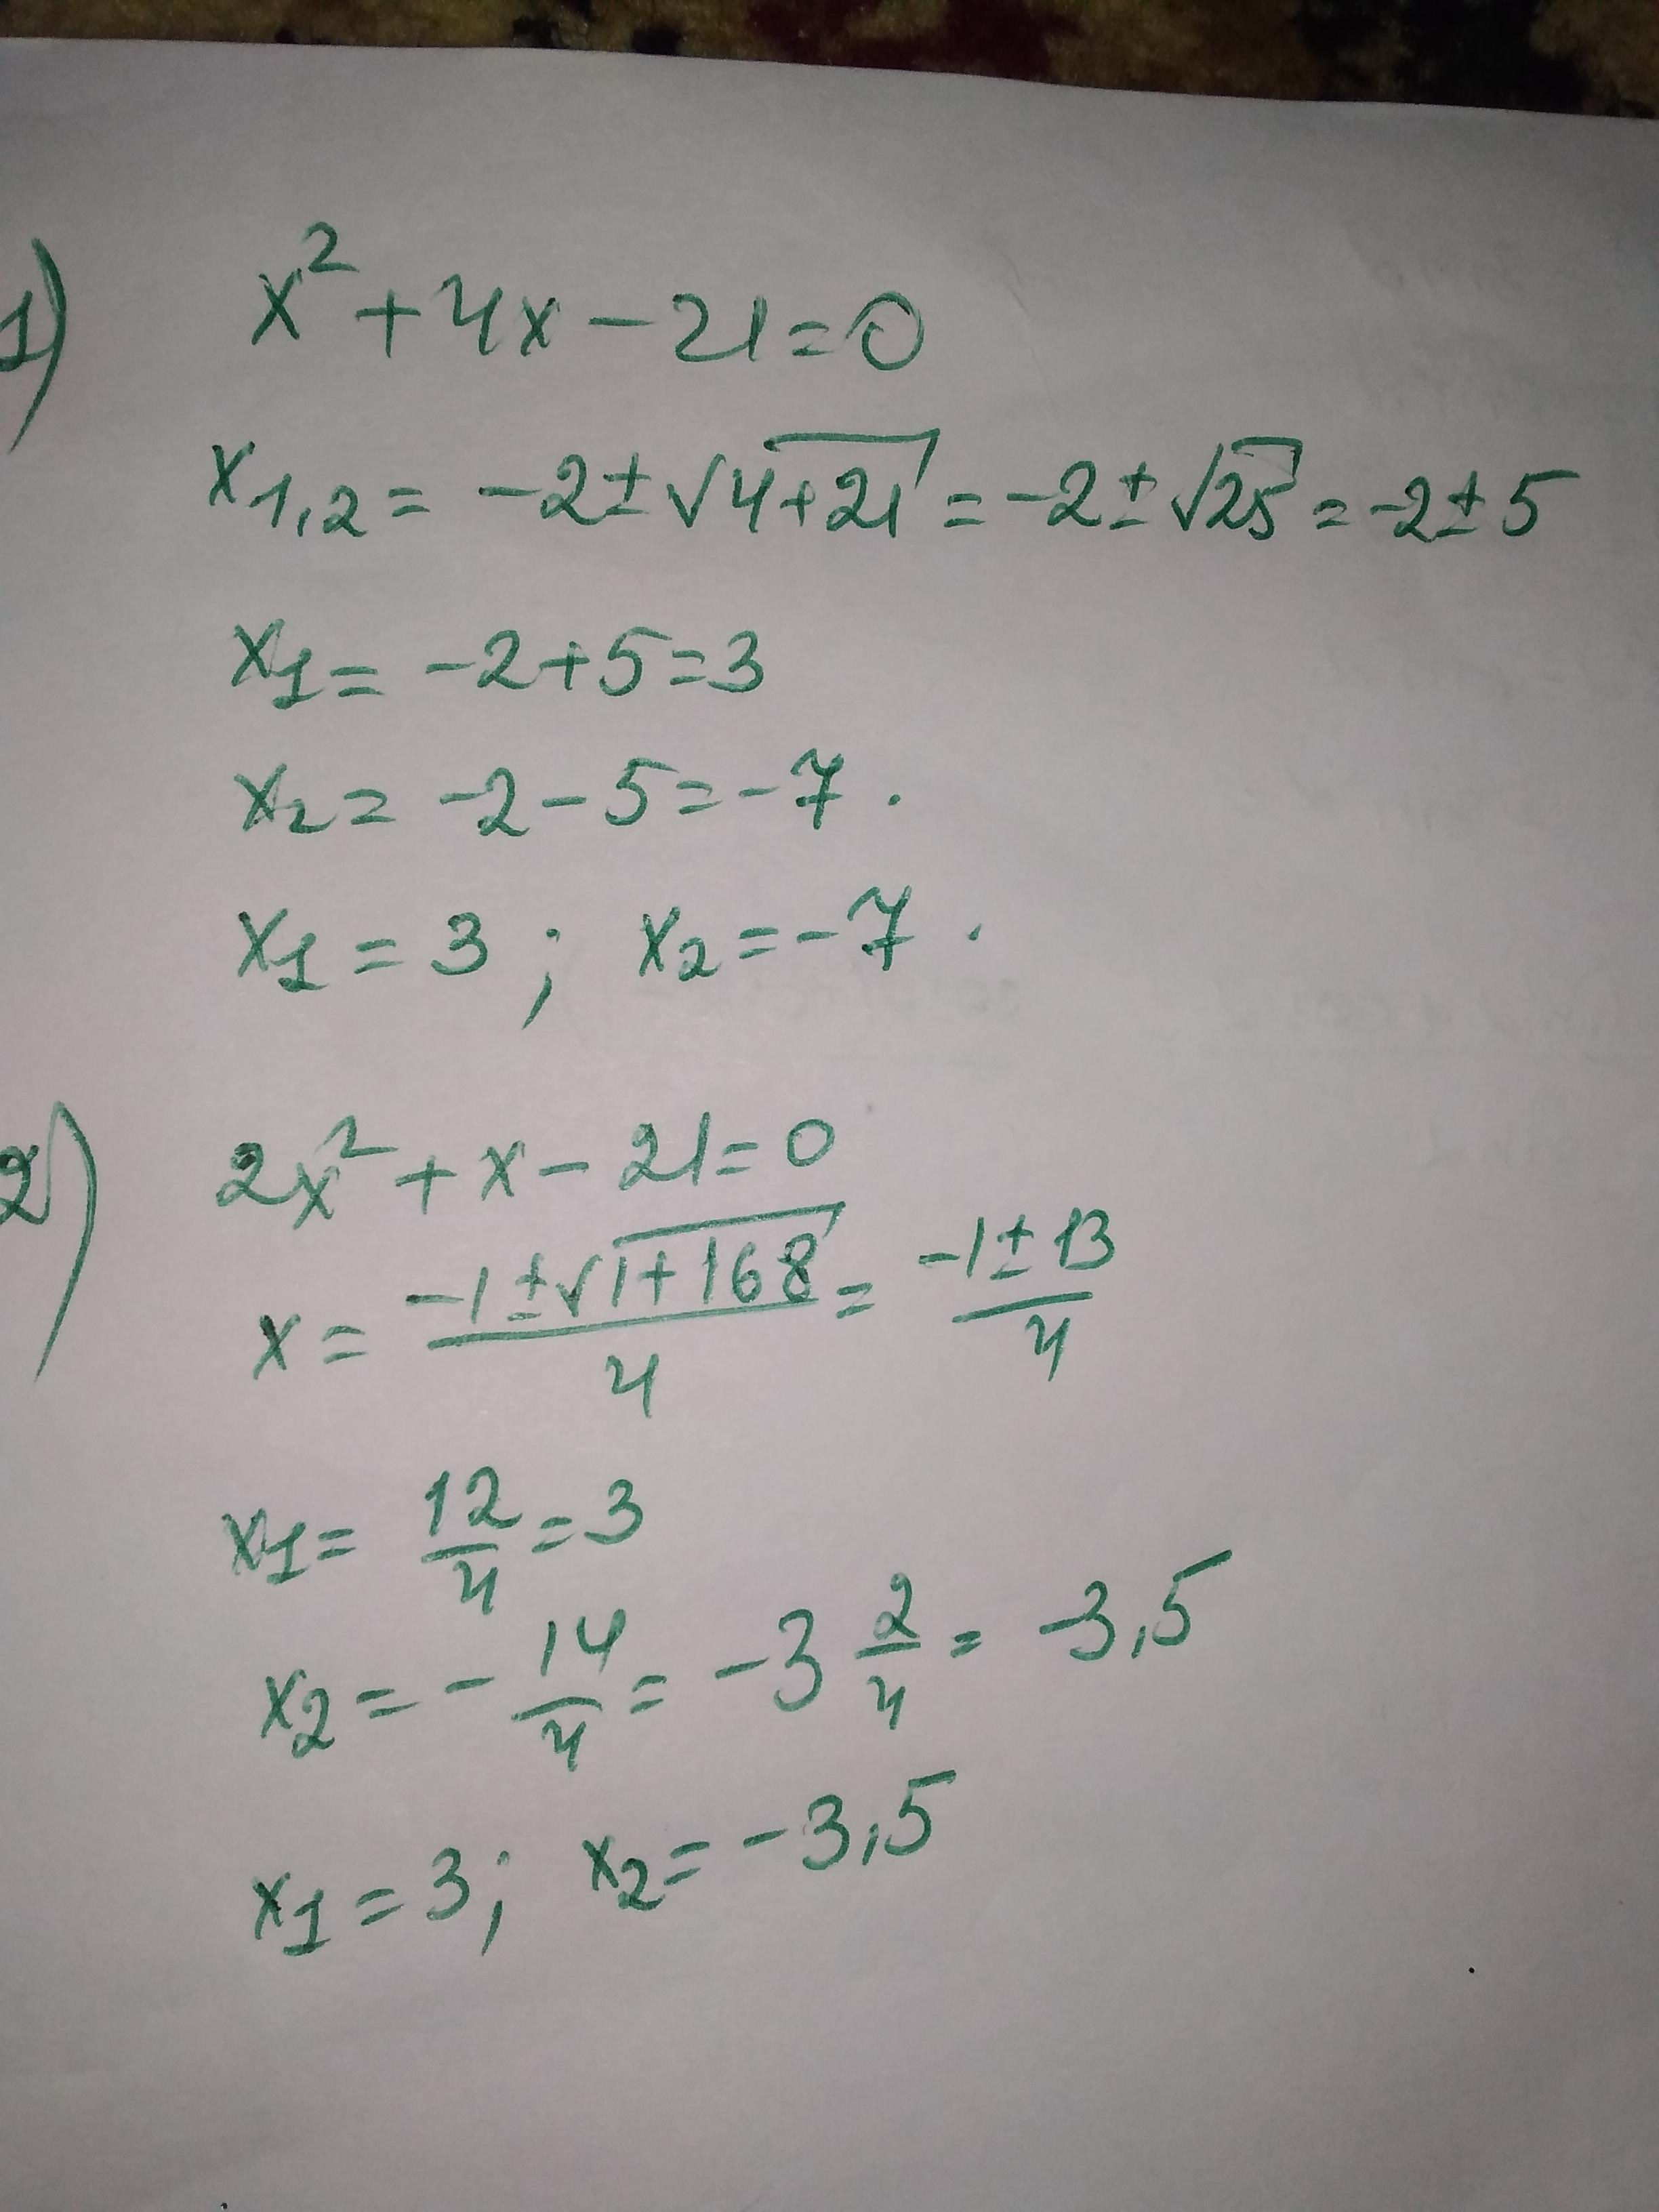 1) x² + 4x - 21 = 0
x₁,₂ = -2 ± √(4+21) = -2 ± √25 = -2 ± 5
x₁ = -2 + 5 = 3
x₂ = -2 - 5 = -7.
x₁ = 3; x₂ = -7.
2) 2x² + x - 21 = 0
x = (-1 ± √(1+168))/4 = (-1 ± 13)/4
x₁ = 12/4 = 3
x₂ = - 14/4 = -3 2/4 = -3,5
x₁ = 3; x₂ = -3,5